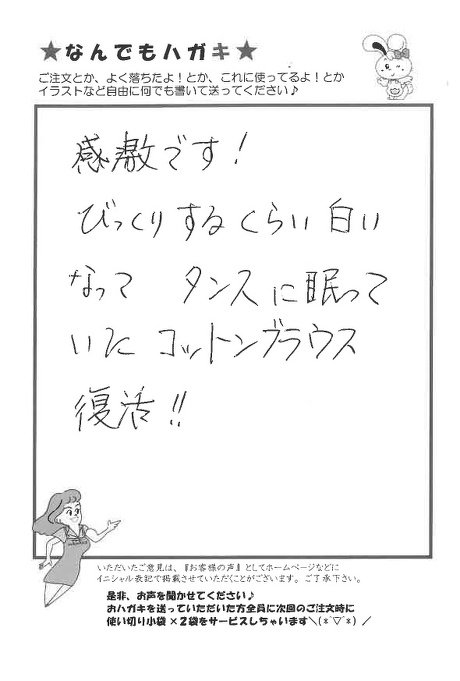 ★なんでもハガキ★
ご注文とか、よく落ちたよ！とか、これに使ってるよ！とか
イラストなど自由に何でも書いて送ってください♪
感激です！
びっくりするくらい白い
なって タンスに眠って
いた コットンブラウス
復活!!
いただいたご意見は、『お客様の声』としてホームページなどに
イニシャル表記で掲載させていただくことがございます。ご了承下さい。
是非、お声を聞かせてください♪
おハガキを送っていただいた方全員に次回のご注文時に
使い切り小袋×2袋をサービスしちゃいます＼(*ˊ▽ˋ*)／